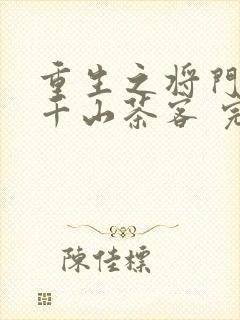 重生之将門
千山茶客 完
陳佳標